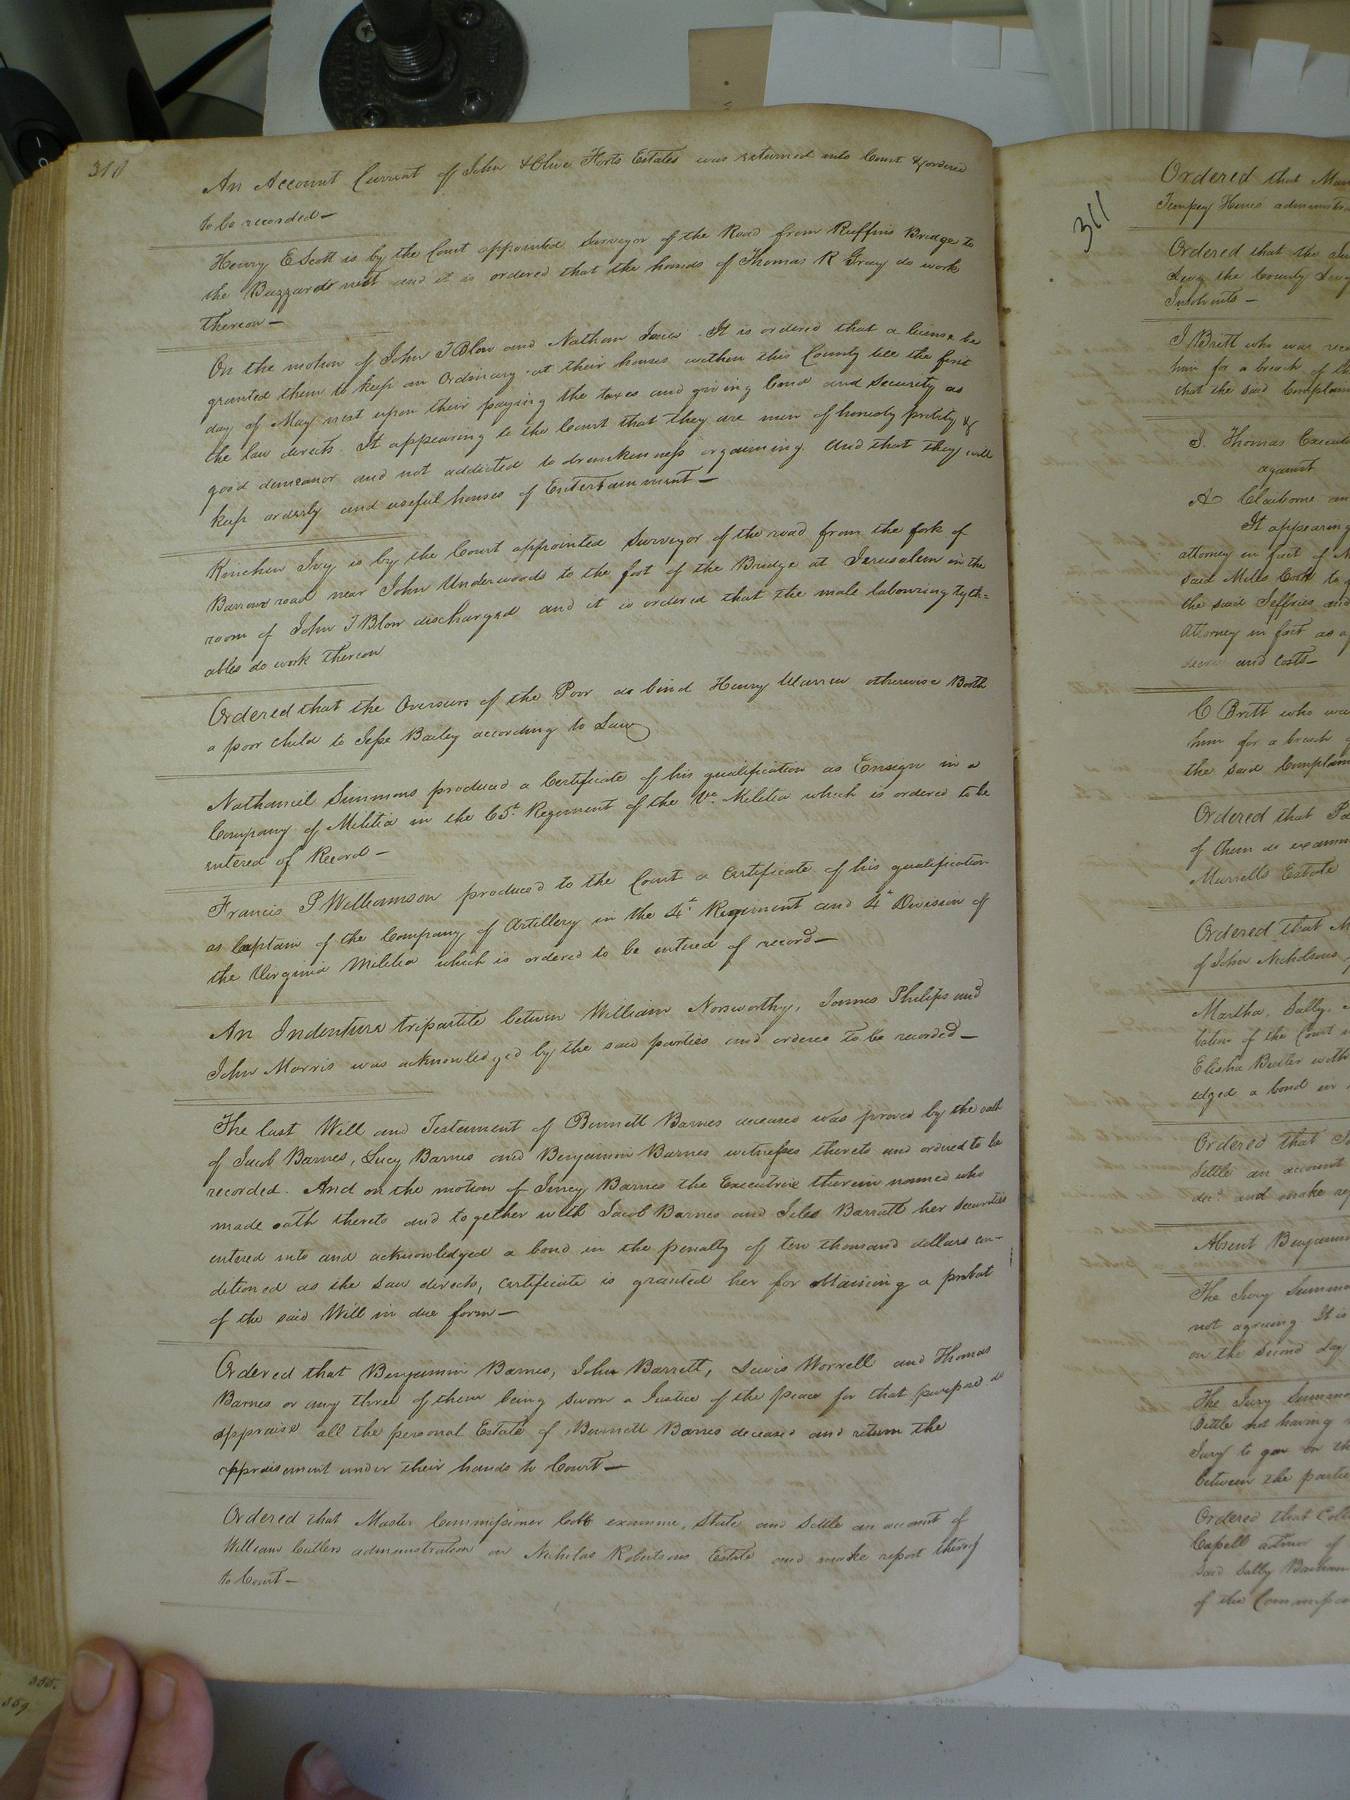 310
An Account Current of John & Olive Forts Estates was returned into Court & ordered
to be recorded—
Henry E Scott is by the Court appointed Surveyor of the Road from Ruffins Bridge to
the Buzzards nest and it is ordered that the hands of Thomas R Gray do work
thereon—
On the motion of John T Blow and Nathan It is ordered that a license be
granted them to keep an Ordinary at their houses within this County till the first
day of May next upon their paying the taxes and giving bond and security as
the law directs. It appearing to the Court that they are men of honesty probity &
good demeanor and not addicted to drunkenness or gaming. And that they will
keep orderly and useful houses of Entertainment—
Kinchen Ivy is by the Court appointed Surveyor of the road from the fork of
Barrow road near John Underwoods to the foot of the Bridge at Jerusalem in the
room of John T Blow discharged and it is ordered that the male labouring tyth=
ables do work thereon
Ordered that the Overseers of the Poor do bind Henry otherwise Booth
a poor child to Jesse Bailey according to Law
Nathaniel Simmons produced a Certificate of his qualification as Ensign in a
Company of Militia in the 65th Regiment of the Va. Militia which is ordered to be
entered of Record—
Francis P Williamson produced to the Court a Certificate of his qualification
as Captain of the Company of Artillery in the 4th Regiment and 4th Division of
the Virginia Militia which is ordered to be entered of record—
An Indenture tripartite between William Norsworthy, James Philips and
John Morris was acknowledged by the said parties and ordered to be recorded—
The last Will and Testament of Bennett Barnes deceased was proved by the oath
of Jacob Barnes, Lucy Barnes and Benjamin Barnes witnesses thereto and ordered to be
recorded. And on the motion of Barnes the Executrix therein named who
made oath thereto and together with Jacob Barnes and Barratt her securities
entered into and acknowledged a bond in the penalty of ten thousand dollars con-
ditioned as the Law directs, Certificate is granted her for obtaining a probat
of the said Will in due form—
Ordered that Benjamin Barnes, John Barrett, Lewis Worrell and Thomas
Barnes or any three of them being sworn a Justice of the peace for that purpose do
appraise all the personal Estate of Bennett Barnes deceased and return the
appraisement under their hands to Court—
Ordered that Master Commissioner Cobb examine, State and Settle an account of
William Cutlers administration on Nicholas Robertsons Estate and make report thereof
to Court—
311
Ordered that
Ordered that the
the County
I Britt who was
him for a breach of
that the said Complain
S. Thomas
against
A Claiborne
It appearing
attorney in fact of
said Miles Cook to
the said Jeffries and
Attorney in fact as
and Costs—
C Britt who was
him for a breach
the said Complain
Ordered that
of them do examine
Murrells Estate
Ordered that
of John Nicholsons
Martha, Sally,
of the Court
Elisha with
edged a bond in
Ordered that
Settle an account
decd. and make
Absent Benjamin
The Jury
not agreeing It is
on the second day
The Jury
not having
Jury to
between the parties
Ordered that
Capell
said Sally
of the Commission